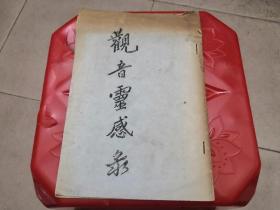 觀音靈感录